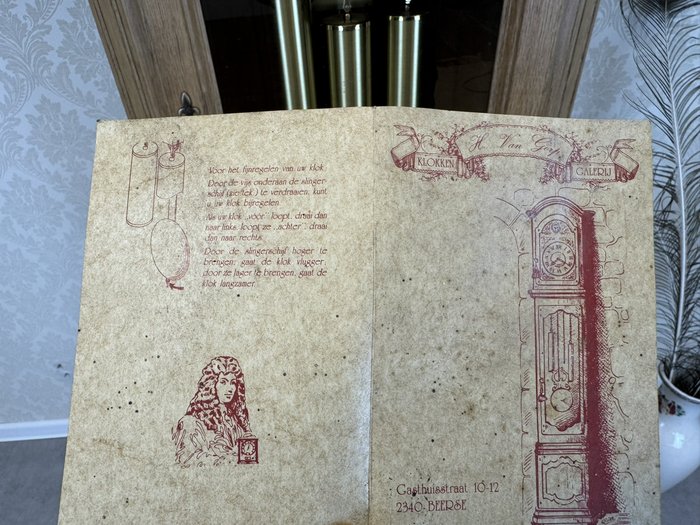 Voor het fijnregelen van uw klok
Door de vijs onderaan de slinger
schijf (zie tek.) te verdraaien, kunt
u uw klok bijregelen.
Als uw klok „voor” loopt, draai dan
naar links, loopt ze „achter”, draai
dan naar rechts.
Door de slingerschijf hoger te
brengen, gaat de klok vlugger,
door ze lager te brengen, gaat de
klok langzamer.
H. Van
KLOKKEN
GALERIJ
Gasthuisstraat 10-12
2340-BEERSE